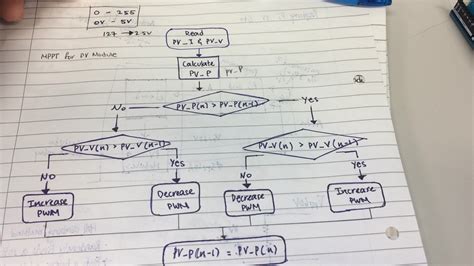 0 - 255
0V - 5V
127 → 2.5V
MPPT for PV Module
Read
PV_I & PV_V
Calculate
PV_P
PV_P
PV_P(n) > PV_P(n-1)
No
Yes
PV_V(n) > PV_V(n-1)
PV_V(n) > PV_V(n-1)
No
Yes
No
Yes
Increase
PWM
Decrease
PWM
Decrease
PWM
Increase
PWM
PV_P(n-1) = PV_P(n)